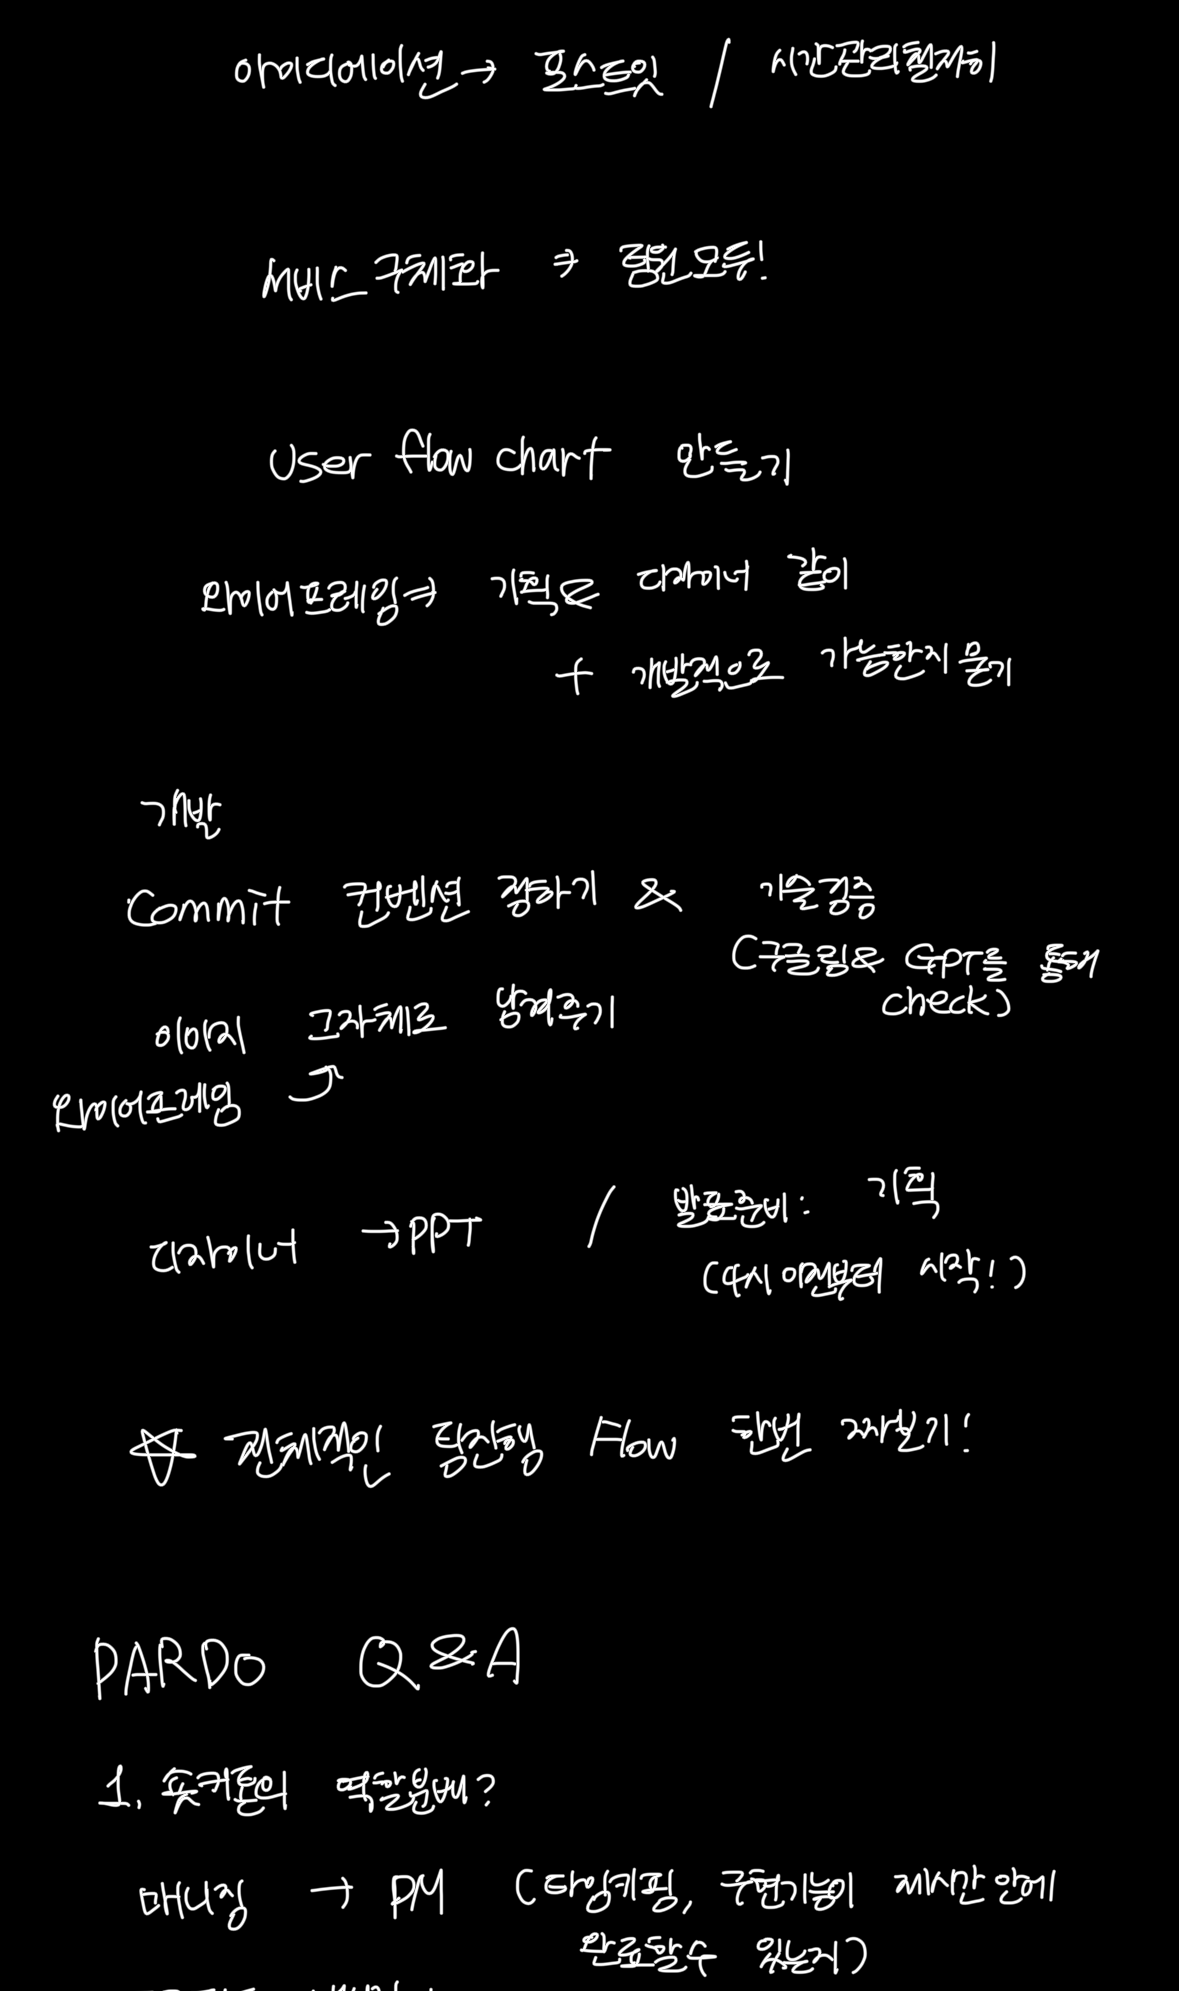 아이디에이션 → 포스트잇 / 시간관리철저히
서비스 구체화 ⇒ 팀원모두!
User flow chart 만들기
와이어프레임 ⇒ 기획 & 디자이너 같이
+ 개발적으로 가능한지 묻기
개발
Commit 컨벤션 정하기 & 기술검증
(구글링 & GPT를 통해
check)
이미지 그자체로 남겨주기
와이어프레임
디자이너 → PPT / 발표준비: 기획
(4시 이전부터 시작!)
☆ 전체적인 팀진행 Flow 한번 짜보기!
PARDO Q&A
1. 숏커톤의 역할분배?
매니징 → PM (타임키핑, 구현기능이 제시간 안에
완료할수 있는지)